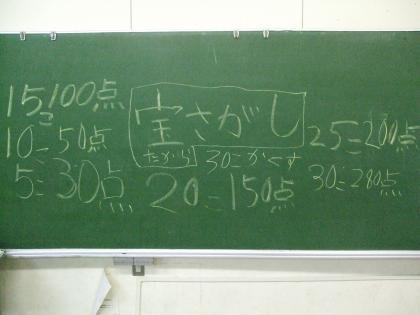 15こ100点
10こ50点
5こ30点
宝さがし
たから
30こかくす
20こ150点
25こ200点
30こ280点